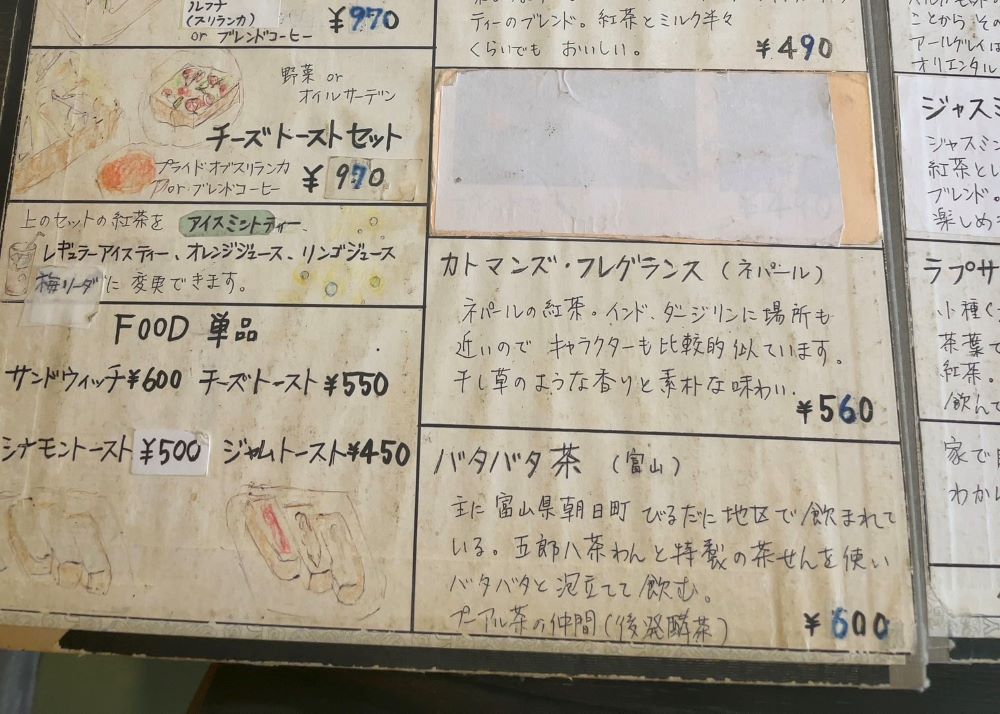 (スリランカ)
or ブレンドコーヒー ¥970
野菜 or
オイルサーデン
チーズトーストセット
プライドオブスリランカ
or ブレンドコーヒー ¥970
上のセットの紅茶を アイスミントティー、
レギュラーアイスティー、オレンジジュース、リンゴジュース
梅ソーダ に変更できます。
FOOD 単品
サンドウィッチ¥600 チーズトースト¥550
シナモントースト ¥500 ジャムトースト¥450
ティーのブレンド。紅茶とミルク半々
くらいでも おいしい。 ¥490
カトマンズ・フレグランス (ネパール)
ネパールの紅茶。インド、ダージリンに場所も
近いので キャラクターも比較的似ています。
干し草のような香りと素朴な味わい.
¥560
バタバタ茶 (富山)
主に富山県朝日町 びるだに地区で飲まれて
いる。五郎八茶わんと特製の茶せんを使い
バタバタと泡立てて飲む。
プーアル茶の仲間(後発酵茶) ¥600
ことから そ
アールグレイは
オリエンタル
ジャスミ
ジャスミン
紅茶とし
ブレンド。
楽しめ
ラプサ
小種(
茶葉で
紅茶。
飲んで
家で
わかし